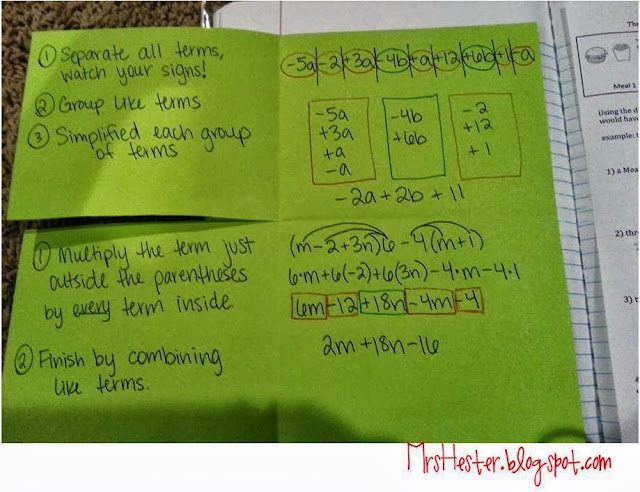 ① Separate all terms,
watch your signs!
② Group like terms
③ Simplified each group
of terms
-5a|-2|+3a|-4b|+a|+12|+6b|+1|-a
-5a
+3a
+a
-a
-4b
+6b
-2
+12
+1
-2a+2b+11
① Multiply the term just
outside the parentheses
by every term inside.
② Finish by combining
like terms.
(m-2+3n)6-4(m+1)
6·m+6(-2)+6(3n)-4·m-4·1
6m-12+18n-4m-4
2m+18n-16
Meal 1
Using the d
would have
example:
1) a Mea
2) thr
3) t
MrsHester.blogspot.com